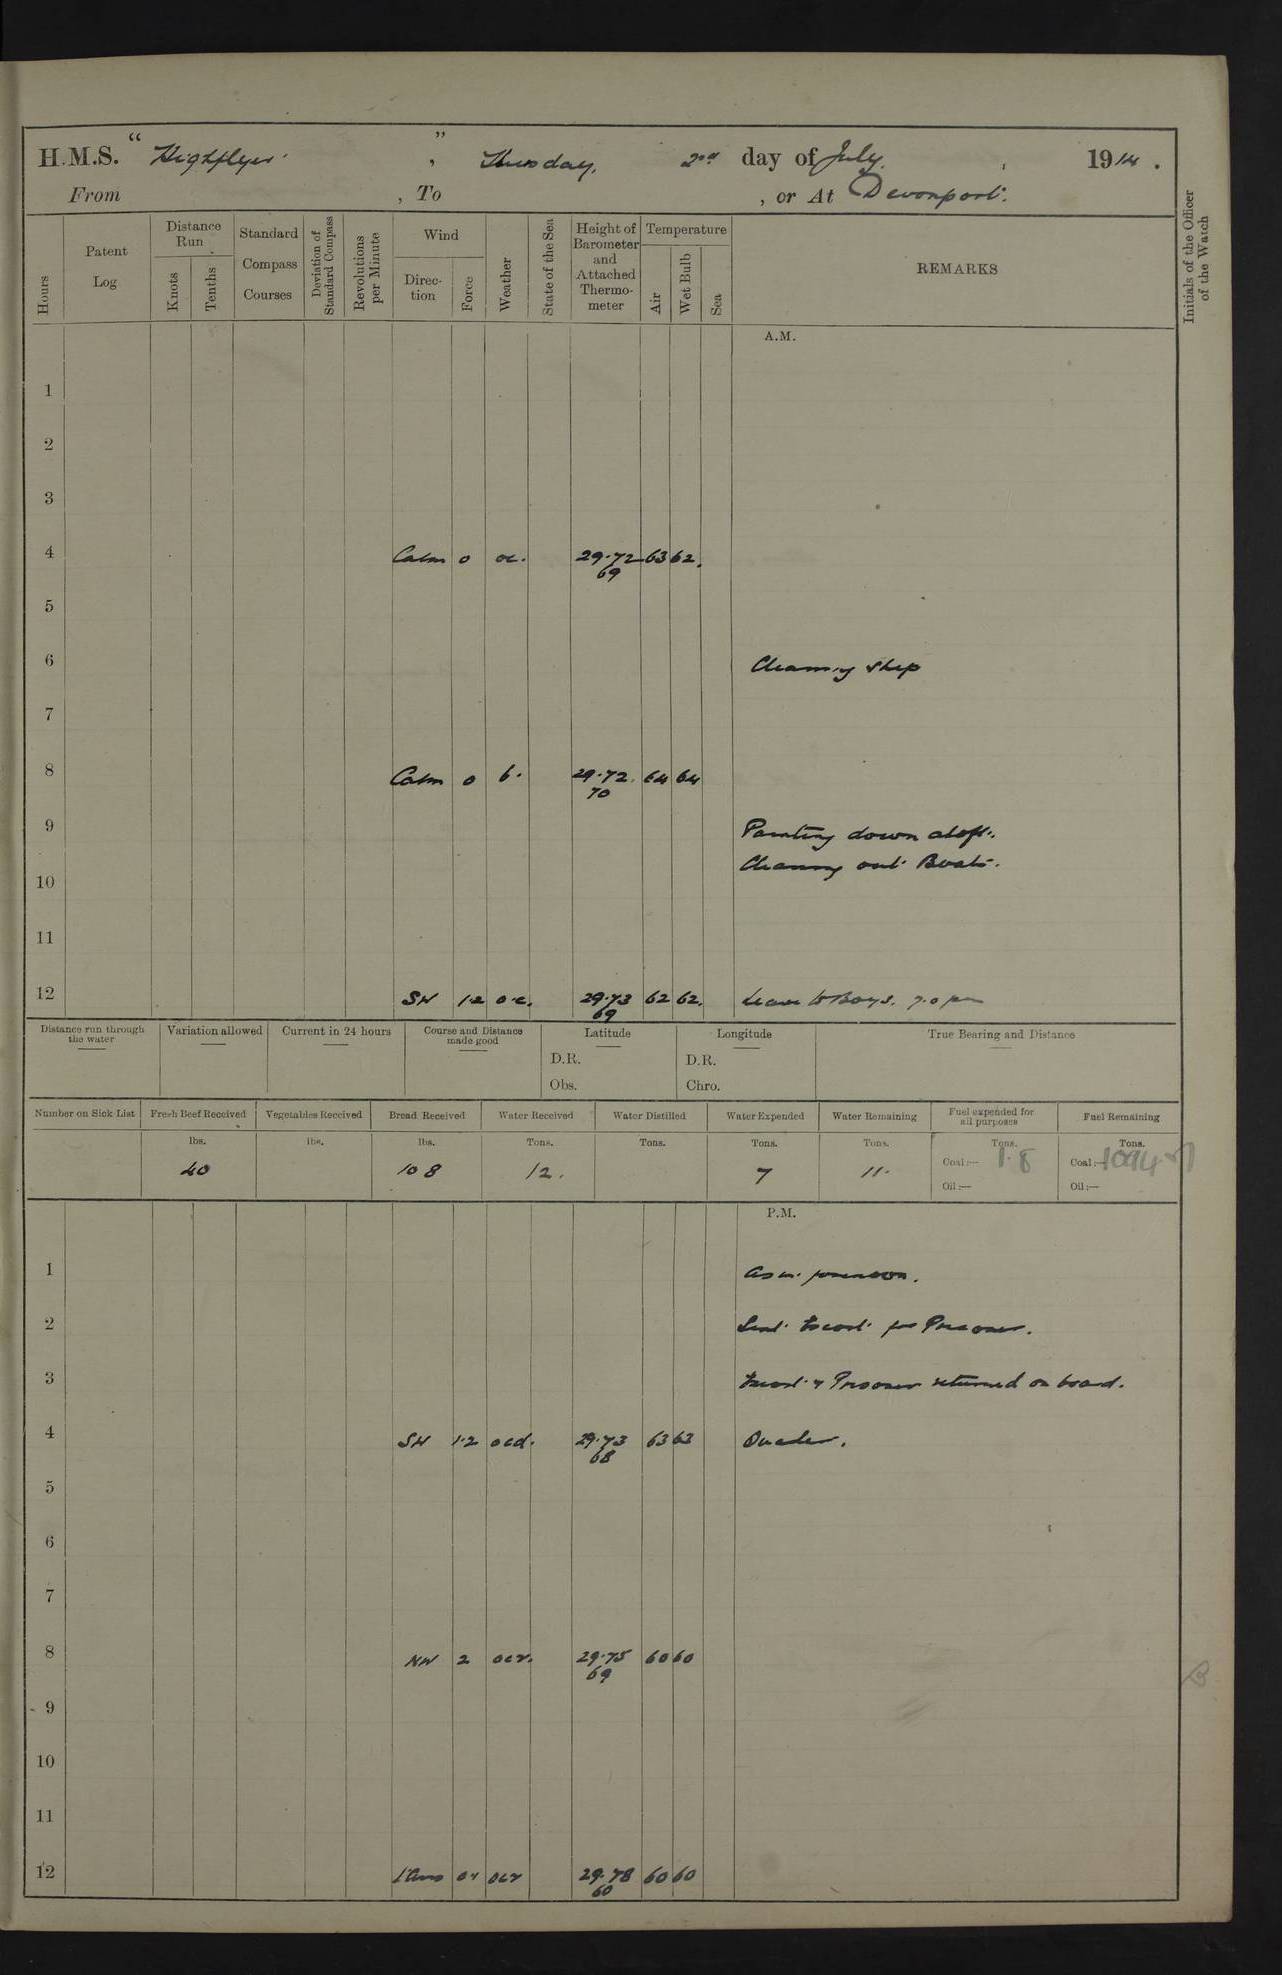 H.M.S. " Highflyer. " , Thursday, 2nd day of July, 1914.
From , To , or At Devonport.
Hours
Patent Log
Distance Run
Knots
Tenths
Standard Compass Courses
Deviation of Standard Compass
Revolutions per Minute
Wind
Direc-tion
Force
Weather
State of the Sea
Height of Barometer and Attached Thermo-meter
Temperature
Air
Wet Bulb
Sea
REMARKS
Initials of the Officer of the Watch
A.M.
1
2
3
4 Calm 0 oc. 29.72 63 62.
69
5
6 Cleaning ship
7
8 Calm 0 b. 29.72. 64 64
70
9 Painting down aloft.
Cleaning out Boats.
10
11
12 SW 1.2 o.c. 29.73 62 62. Leave to Boys. 7.0 pm
69
Distance run through the water
Variation allowed
Current in 24 hours
Course and Distance made good
Latitude
D.R.
Obs.
Longitude
D.R.
Chro.
True Bearing and Distance
Number on Sick List
Fresh Beef Received
Vegetables Received
Bread Received
Water Received
Water Distilled
Water Expended
Water Remaining
Fuel expended for all purposes
Fuel Remaining
lbs. lbs. lbs. Tons. Tons. Tons. Tons. Tons. Tons.
40 108 12. 7 11.
Coal:— 1.8
Oil:—
Coal:—
Oil:—
P.M.
1 As in forenoon.
2 Sent Escort for Prisoner.
3 Escort & Prisoner returned on board.
4 SW 1.2 ocd. 29.73 63 63
68
5
6
7
8 NW 2 ocr. 29.75 60 60
69
9
10
11
12 ocr 29.78 60 60
60